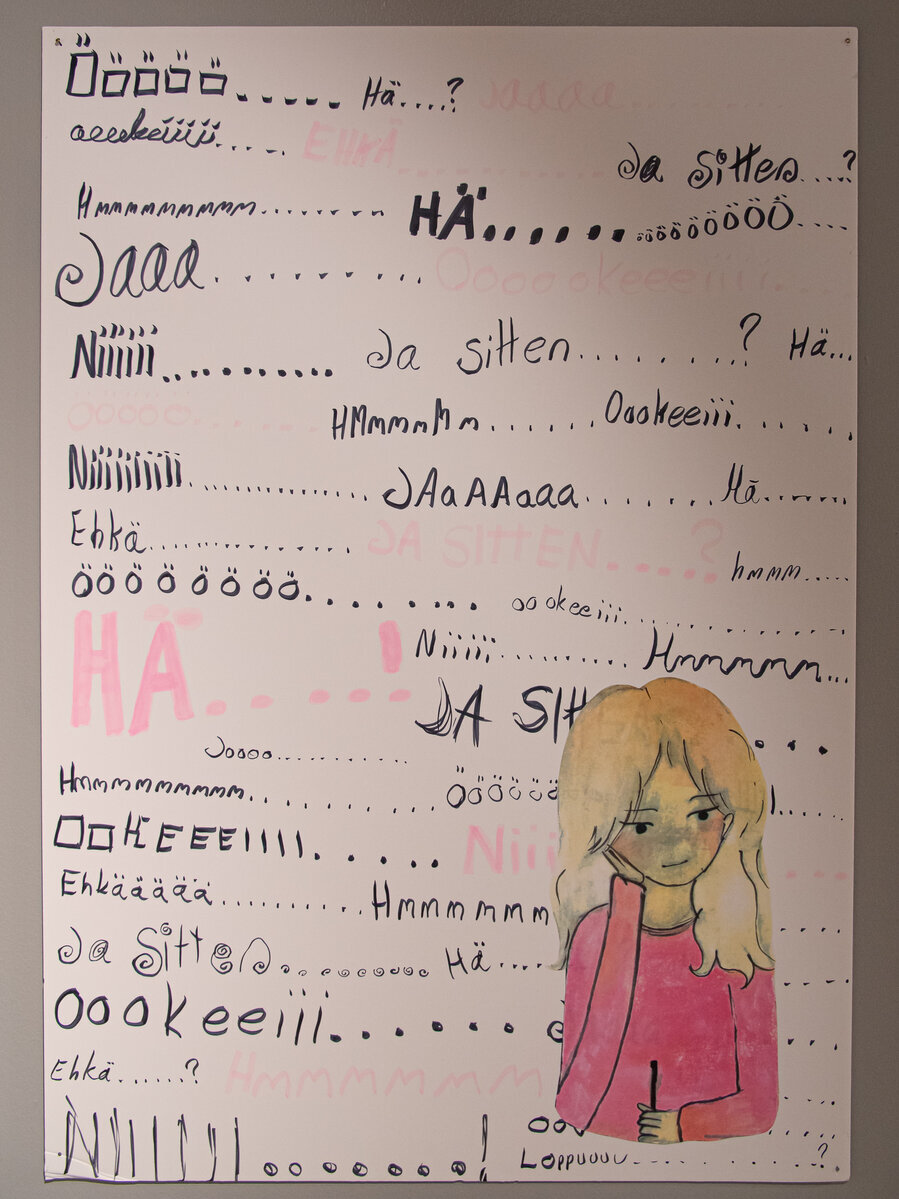 Ööööö..... Hä....? Jaaaa
ooookeiiiii..... EHKÄ.......... Ja sitten....?
Hmmmmmmmmm.......... HÄ...... öööööööööö....
Jaaa........ Ooookeeeiiii.....
Niiiiii.......... Ja sitten.......? Hä...
ööööö....... HMmmmMm...... Oookeeiii......
Niiiiiiiii.............. JAaAAaaa...... Hä.......
Ehkä............... JA SITTEN....? hmmm.....
öööööööö....... oookeeiii..............
HÄ.....! Niiiii......... Hmmmmm...
JA SITT
Joooo..............
Hmmmmmmmmm......... öööööö
OOKEEEIIII..... Niii
Ehkäääää........... Hmmmmmm
Ja Sitten......... Hä....
Oookeeiii.......
Ehkä......? Hmmmmmmm
NIIIIII.......! oo
Loppuuuu.............?